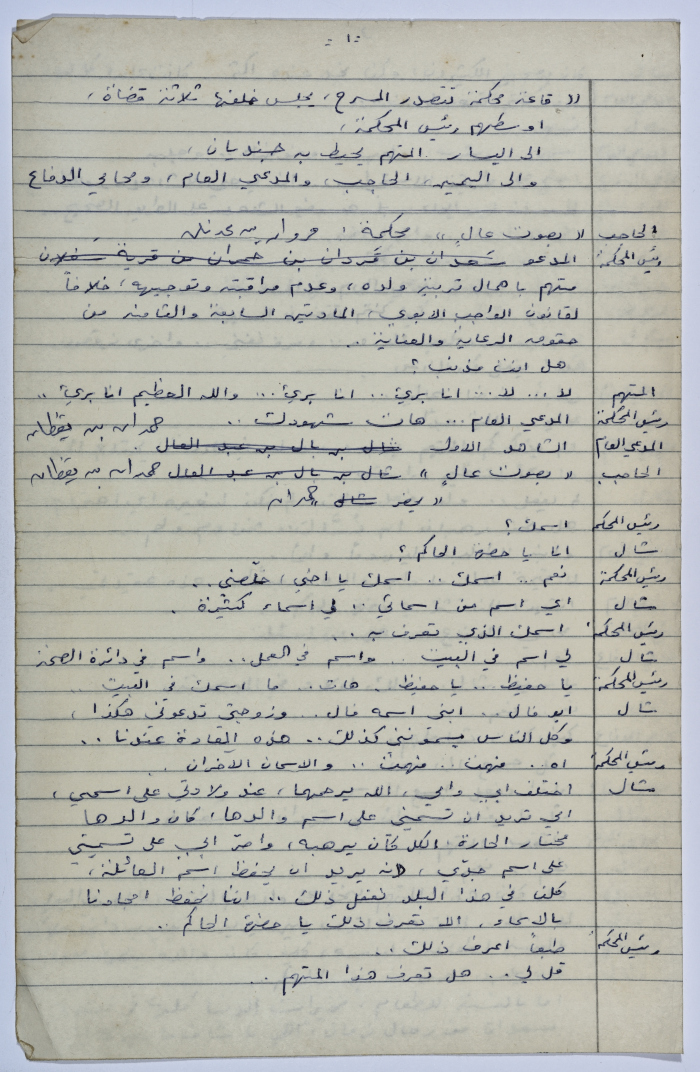 - ١ -
(( قاعة محكمة تتصدر المسرح، يجلس خلفها ثلاثة قضاة،
اوسطهم رئيس المحكمة،
الى اليسار .. المتهم يحيط به جنديان،
والى اليمين، الحاجب، والمدعي العام، ومحامي الدفاع
الحاجب (( بصوت عالٍ )) محكمة :
رئيس المحكمة المدعو سعدان بن قردان بن حمران من قرية سفلان
متهم باهمال تربية ولده، وعدم مراقبته وتوجيهه، خلافاً
لقانون الواجب الابوي، المادتين السابعة والثامنة من
حقوق الرعاية والعناية ..
هل انت مذنب؟
المتهم لا ... لا ... انا بريء .. انا بريء ... والله العظيم انا بريء
رئيس المحكمة المدعي العام ... هات شهودك ..
المدعي العام الشاهد الاول شال بن بال بن عبد العال . حمدان بن يقظان
الحاجب (( بصوت عالٍ )) شال بن بال بن عبد العال حمدان بن يقظان
(( يحضر شال )) حمدان
رئيس المحكمة اسمك؟
شال انا يا حضرة الحاكم؟
رئيس المحكمة نعم .. اسمك .. اسمك يا اخي، خلّصني ..
شال اي اسم من اسمائي .. لي اسماء كثيرة .
رئيس المحكمة اسمك الذي تعرف به ..
شال لي اسم في البيت .. واسم في العمل .. واسم في دائرة الصحة
رئيس المحكمة يا حفيظ ... يا حفيظ . هات .. ما اسمك في البيت ..
شال ابو فال .. ابني اسمه فال .. وزوجتي تدعوني هكذا،
وكل الناس يسمونني كذلك .. هذه العادة عندنا ..
رئيس المحكمة اه .. فهمت .. فهمت .. والاسمان الآخران ..
شال اختلف ابي وامي، الله يرحمهما، عند ولادتي على اسمي،
امي تريد ان تسميني على اسم والدها، كان والدها
مختار الحارة، الكل كان يرهبه، واصرّ ابي على تسميتي
على اسم جدّي، لانه يريد ان يحفظ اسم العائلة،
كلنا في هذا البلد نفعل ذلك .. اننا نحفظ امجادنا
بالاسماء، الا تعرف ذلك يا حضرة الحاكم ..
رئيس المحكمة طبعاً اعرف ذلك ..
قل لي .. هل تعرف هذا المتهم ..